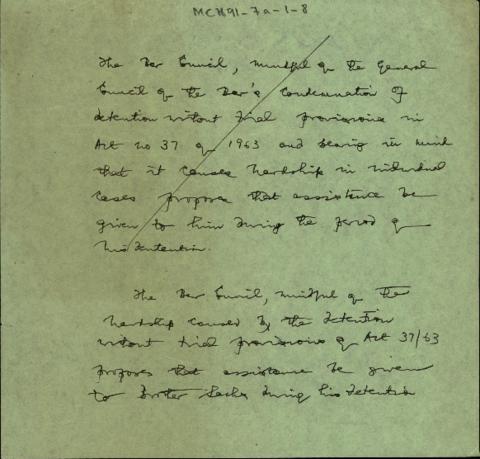 MCH91-7a-1-8
The Bar Council, mindful of the General
Council of the Bar's condemnation of
detention without trial provisions in
Act no 37 of 1963 and bearing in mind
that it causes hardship in individual
cases propose that assistance be
given to him during the period of
his detention.
The Bar Council, mindful of the
hardship caused by the detention
without trial provisions of Act 37/63
proposes that assistance be given
to Brother Sachs during his detention